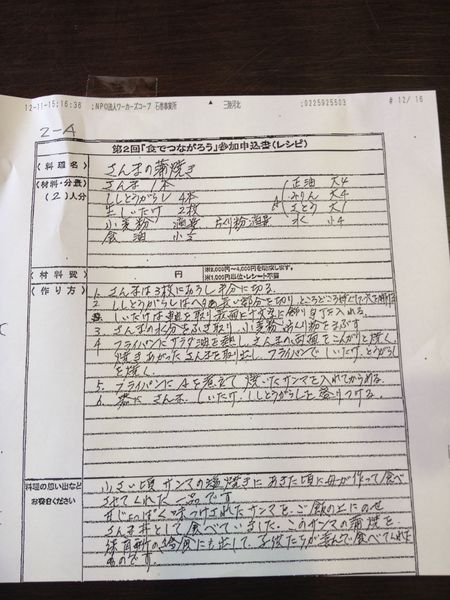 12-11-15;16:36 ;NPO法人ワーカーズコープ 石巻事業所 ▲ 三陸河北 ;0225925503 # 12/ 16
2-A
第2回「食でつながろう」参加申込書(レシピ)
(料理名) さんまの蒲焼き
(材料・分量) さんま 1本
(2)人分 ししとうがらし 4本
生しいたけ 2枚
小麦粉 適量 片くり粉適量
食油 小さ
A 正油 大4
みりん 大4
さとう 大1
水 小4
(材料費) 円 ※2,000円~4,000円を助成します。
※1,000円単位・レシート不要
(作り方) 1. さんまは3枚におろし半分に切る。
2 ししとうがらしはへたの長い部分を切り、ところどころ
しいたけは軸を取り表面に十文字に飾り包丁を入れる。
3. さんまの水分をふき取り、小麦粉、片くり粉をまぶす
4 フライパンにサラダ油を熱し、さんまの両面をこんがりと焼く。
焼きあがったさんまを取り出し、フライパンで しいたけ、とうがらし
を焼く。
5. フライパンに Aを煮立て 焼いたサンマを入れてからめる。
6. 器に さんま、しいたけ、ししとうがらしを盛りつける。
料理の思い出など 小さい頃 サンマの塩焼きにあきた頃に母が作って食べ
お寄せください させてくれた一品です
味つけされたサンマを、ご飯の上にのせ
さんま丼として食べていました。このサンマの蒲焼を、
保育所の給食にも出して、子供たちが喜んで食べてくれた
ものです。